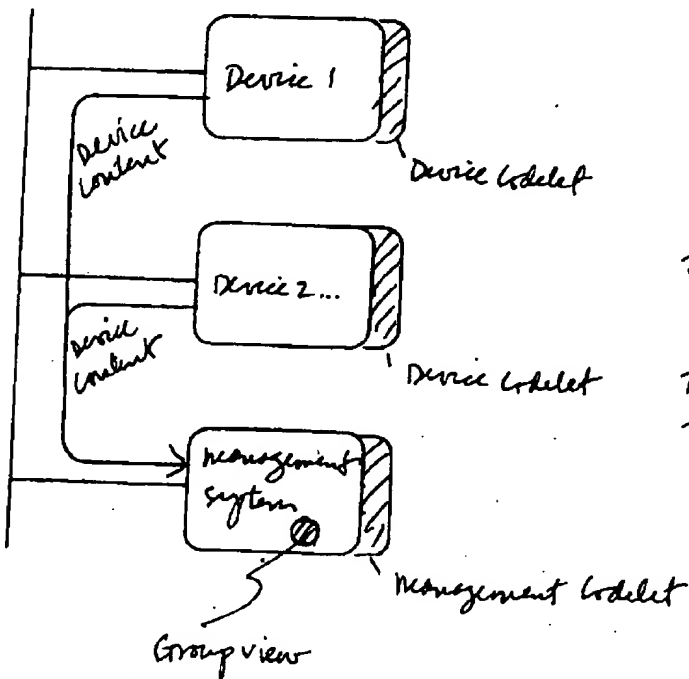 Device 1
Device
content
Device Codelet
Device 2...
Device
content
Device Codelet
management
system
management Codelet
Group view